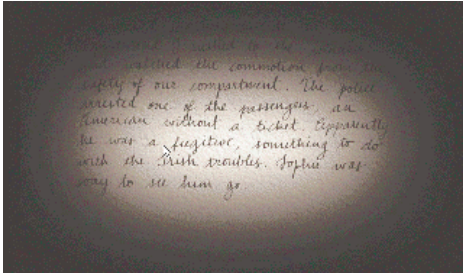 to the
watched the commotion from the
safety of our compartment. The police
arrested one of the passengers, an
American without a ticket. Apparently
he was a fugitive, something to do
with the Irish troubles. Sophie was
sorry to see him go.